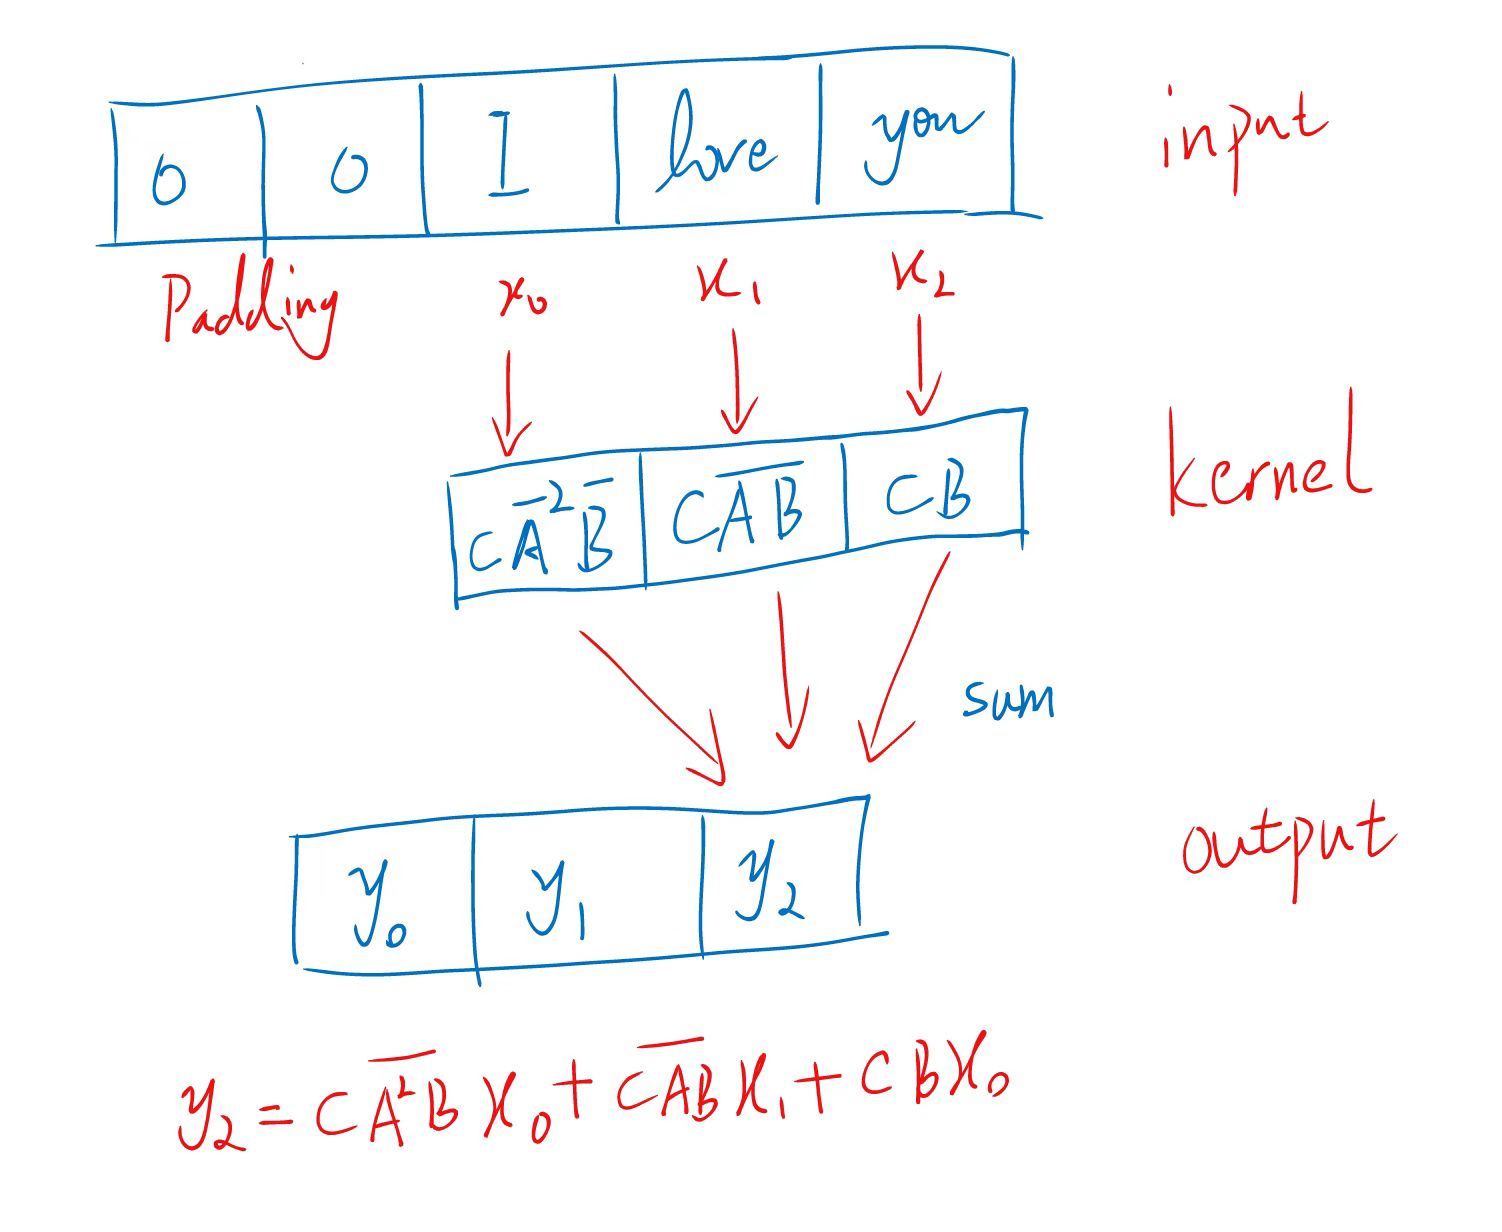 0 0 I love you input
Padding x₀ x₁ x₂
CA̅²B̅ CA̅B̅ CB kernel
sum
y₀ y₁ y₂ output
y₂ = CA̅²B̅x₀ + CA̅B̅x₁ + CBx₀